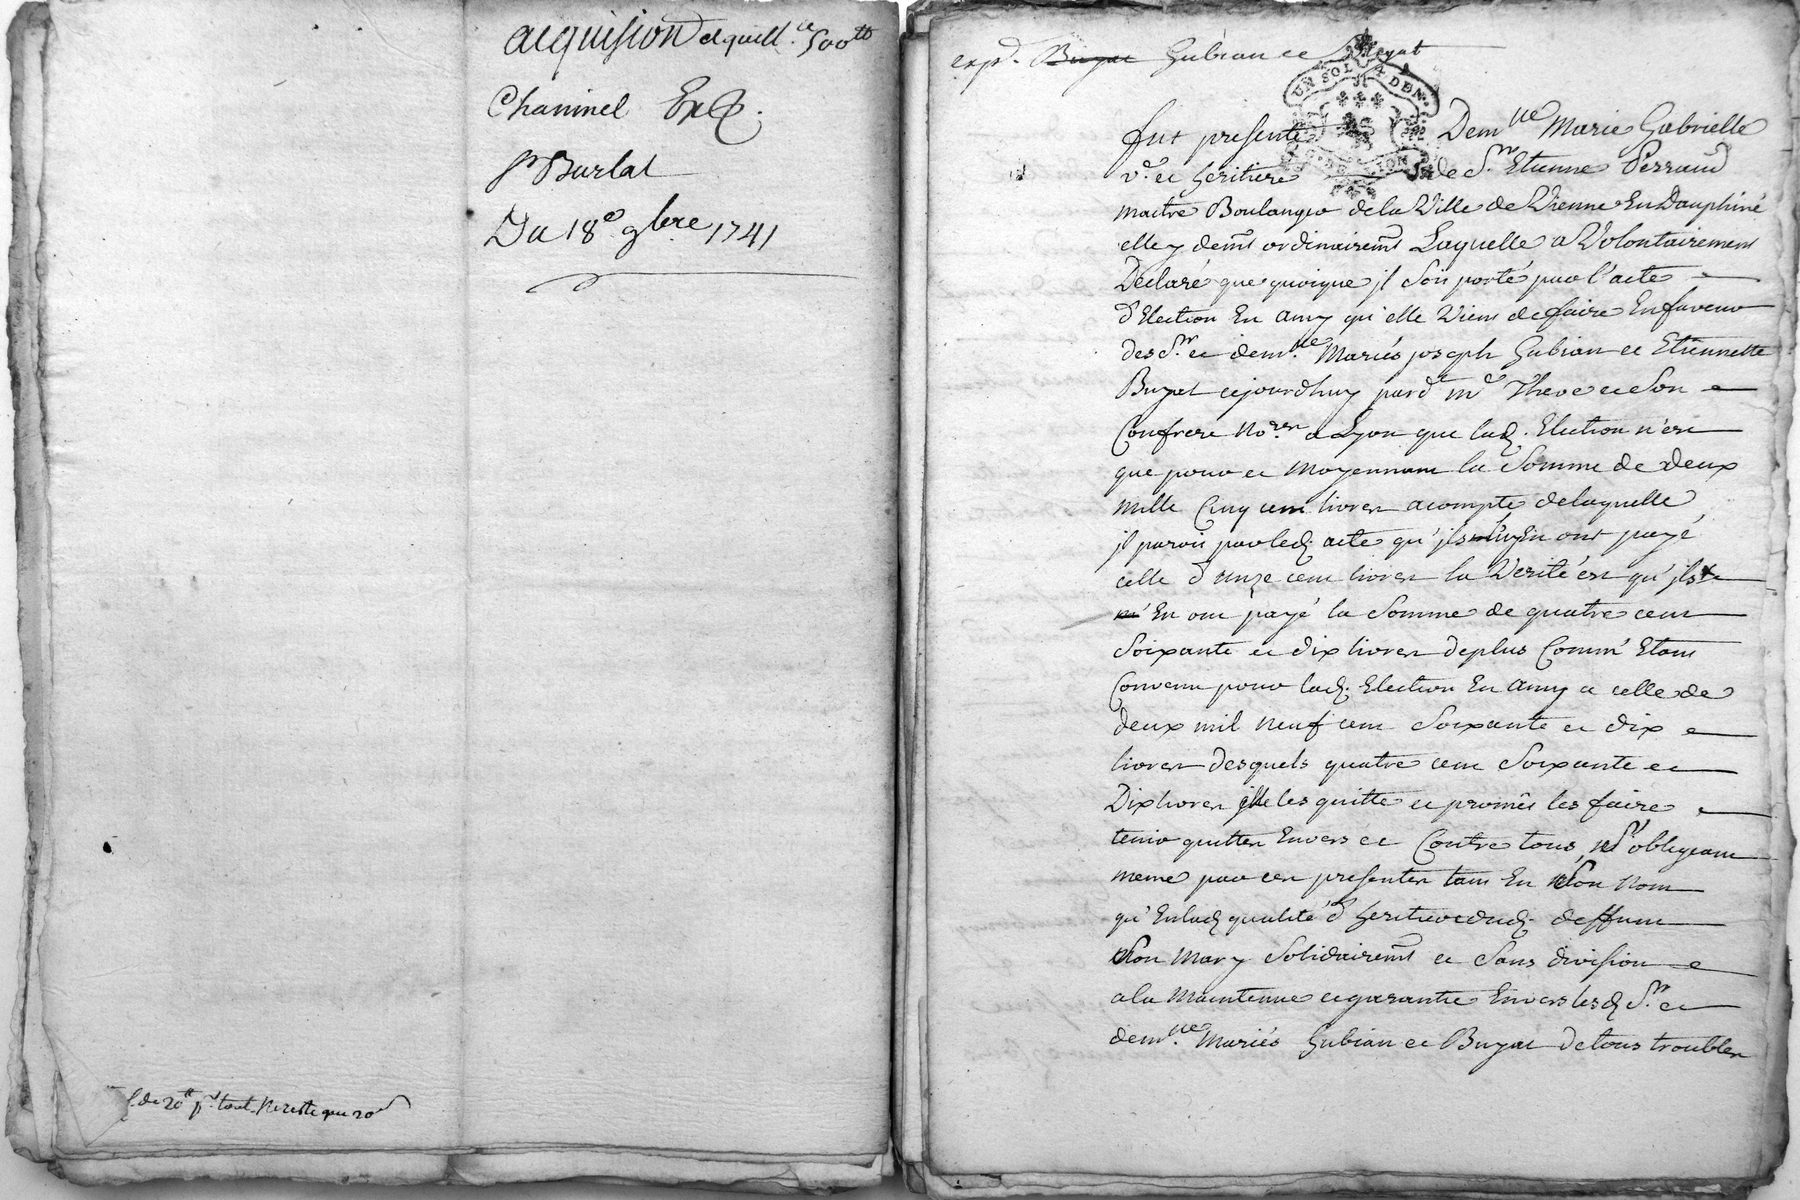 acquision et quitt.ce 500tt
Chaninel Exp.
pr Burlat
Du 18e 9bre 1741
de 20tt pr. tout. Ne reste que 20s
exp. Buyat Gubian et Buyat
UN SOL 4 DEN.
G. DE LYON
fut presente Demlle Marie Gabrielle
ve. et heritiere de Sr. Etienne Perraud
maitre Boulanger de la Ville de Vienne En Dauphiné
elle y demt ordinairemt Laquelle a Volontairement
Declaré que quoique jl soit porté par l'acte
d'Election En amy qu'elle Vient de faire En faveur
des Sr. et demlle. Mariés joseph Gubian et Etiennette
Buyat cejourdhuy pardt me Theve et Son
Confrere Nores a Lyon que lad. Election n'est
que pour et moyennant la Somme de deux
mille Cinq cent livres acompte delaquelle
jl paroit par led. acte qu'jls luy En ont payé
celle d'unze cent livres la Verité est qu'jls
m'En ont payé la Somme de quatre cent
Soixante et dix livres deplus Comm' Etant
Convenu pour lad. Election En amy a celle de
deux mil neuf cent Soixante et dix
livres desquels quatre cent Soixante et
Dix livres elle les quitte et promêt les faire
tenir quittes Envers et Contre tous, s'obligeant
meme par ces presentes tant En Son Nom
qu'En lad. qualité d'heritiere dud. deffunt
Son Mary Solidairemt et Sans division
a la Maintenue et garantie Envers lesd. Sr. et
demlle. Mariés Gubian et Buyat de tous troubles